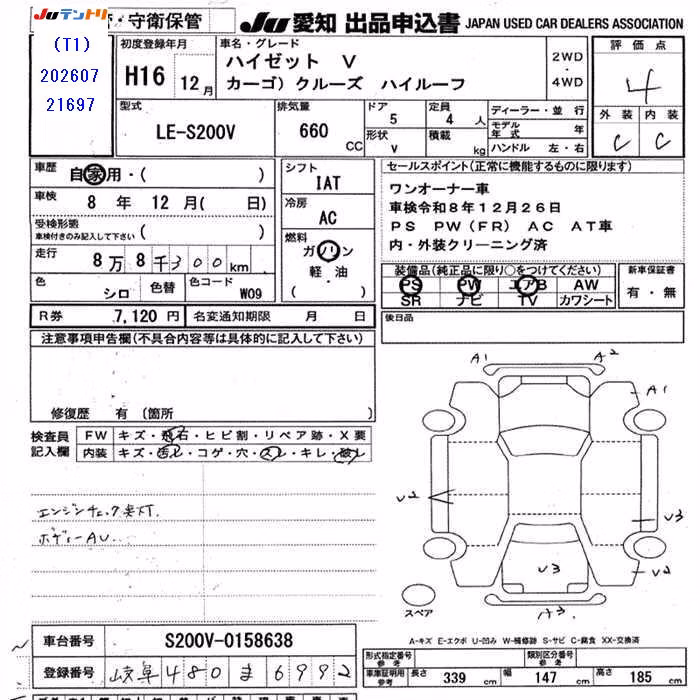 JUテントリ
・守衛保管
JU 愛知 出品申込書 JAPAN USED CAR DEALERS ASSOCIATION
(T1)
202607
21697
初度登録年月
H16 12月
車名・グレード
ハイゼット V
カーゴ) クルーズ ハイルーフ
2WD
・
4WD
評価点
4
外装 内装
C C
型式
LE-S200V
排気量
660 CC
ドア
5
定員
4 人
形状
V
積載
kg
ディーラー・並行
モデル年式 年
ハンドル 左・右
車歴
自家用・( )
車検
8 年 12 月( 日)
受検形態
車検付きのみ記入して下さい ( )
走行
8万8千300km
色
シロ
色替
色コード
W09
シフト
IAT
冷房
AC
燃料
ガソリン
軽・油
( )
セールスポイント(正常に機能するものに限ります)
ワンオーナー車
車検令和8年12月26日
PS PW(FR) AC AT車
内・外装クリーニング済
装備品(純正品に限り○をつけてください)
PS PW エアB AW
SR ナビ TV カワシート
新車保証書
有・無
R券 7,120円 名変通知期限 月 日
後日品
注意事項申告欄(不具合内容等は具体的に記入して下さい)
修復歴 有(箇所
検査員
記入欄
FW キズ・飛石・ヒビ割・リペア跡・X要
内装 キズ・汚レ・コゲ・穴・スレ・キレ・破レ
エンジンチェック灯.
ボディーAU..
A1 A2
A1
U2
U3
U3
U2
A3
スペア
A-キズ E-エクボ U-凹み W-補修跡 S-サビ C-腐食 XX-交換済
車台番号 S200V-0158638
登録番号 岐阜480ま6992
形式指定番号
参考
類別区分番号
参考
車庫証明用
参考
長さ 339 幅 147 高さ 185 cm